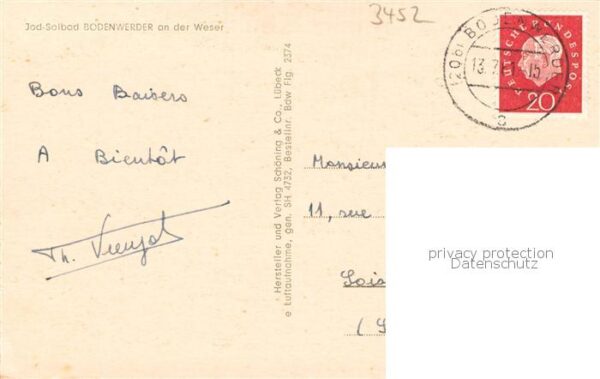 3452
Jod-Solbad BODENWERDER an der Weser
Bons Baisers
A Bientôt
Th.
Hersteller und Verlag Schöning & Co., Lübeck
Luftaufnahme, gen. SH 4732, Bestellnr. Bdw Flg. 2374
DEUTSCHE BUNDESPOST
20
BODENWERDER
13.7.
15
c
Monsieur
11, rue
Sois
(S
privacy protection
Datenschutz